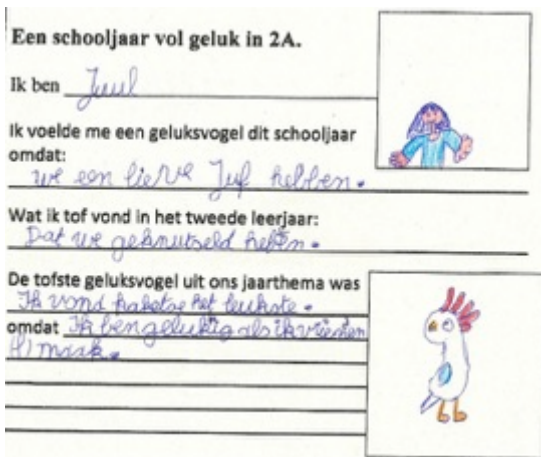 Een schooljaar vol geluk in 2A.
Ik ben Juul
Ik voelde me een geluksvogel dit schooljaar
omdat:
we een lieve Juf hebben.
Wat ik tof vond in het tweede leerjaar:
Dat we geknutseld hebben.
De tofste geluksvogel uit ons jaarthema was
Ik vond het leukste.
omdat Ik ben gelukkig als ik vrienden
maak.